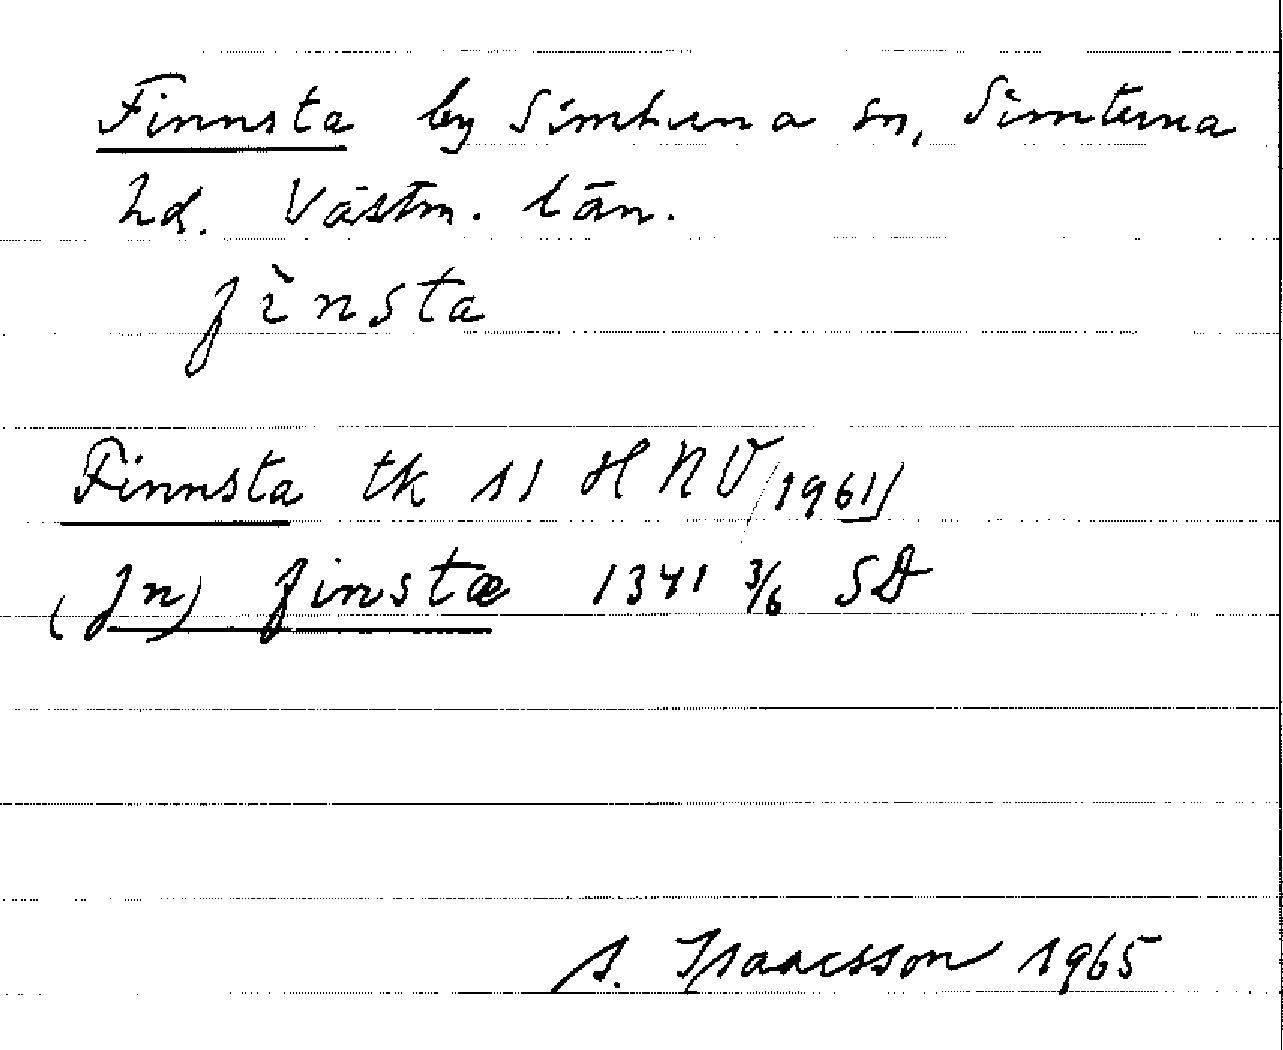 Finnsta by Simtuna sn, Simtuna
hd. Västm. län.
fìnsta
Finnsta tk 11 H NV /1961/
(jn) finstæ 1341 3/6 SD
A. Isaacsson 1965